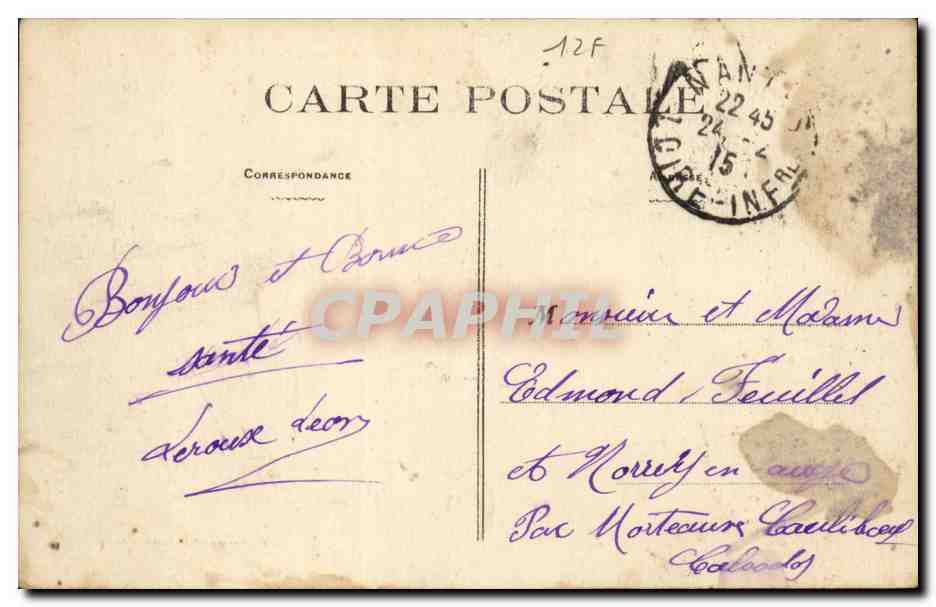 12F
CARTE POSTALE
NANT
22 45
24 12
15
LOIRE-INFRE
CORRESPONDANCE
CPAPHIL
Bonjour et Bonne
santé
Leroux Leon
Monsieur et Madame
Edmond Feuillet
et Norrey en auge
Par Morteaux Coulibœuf
Calvados